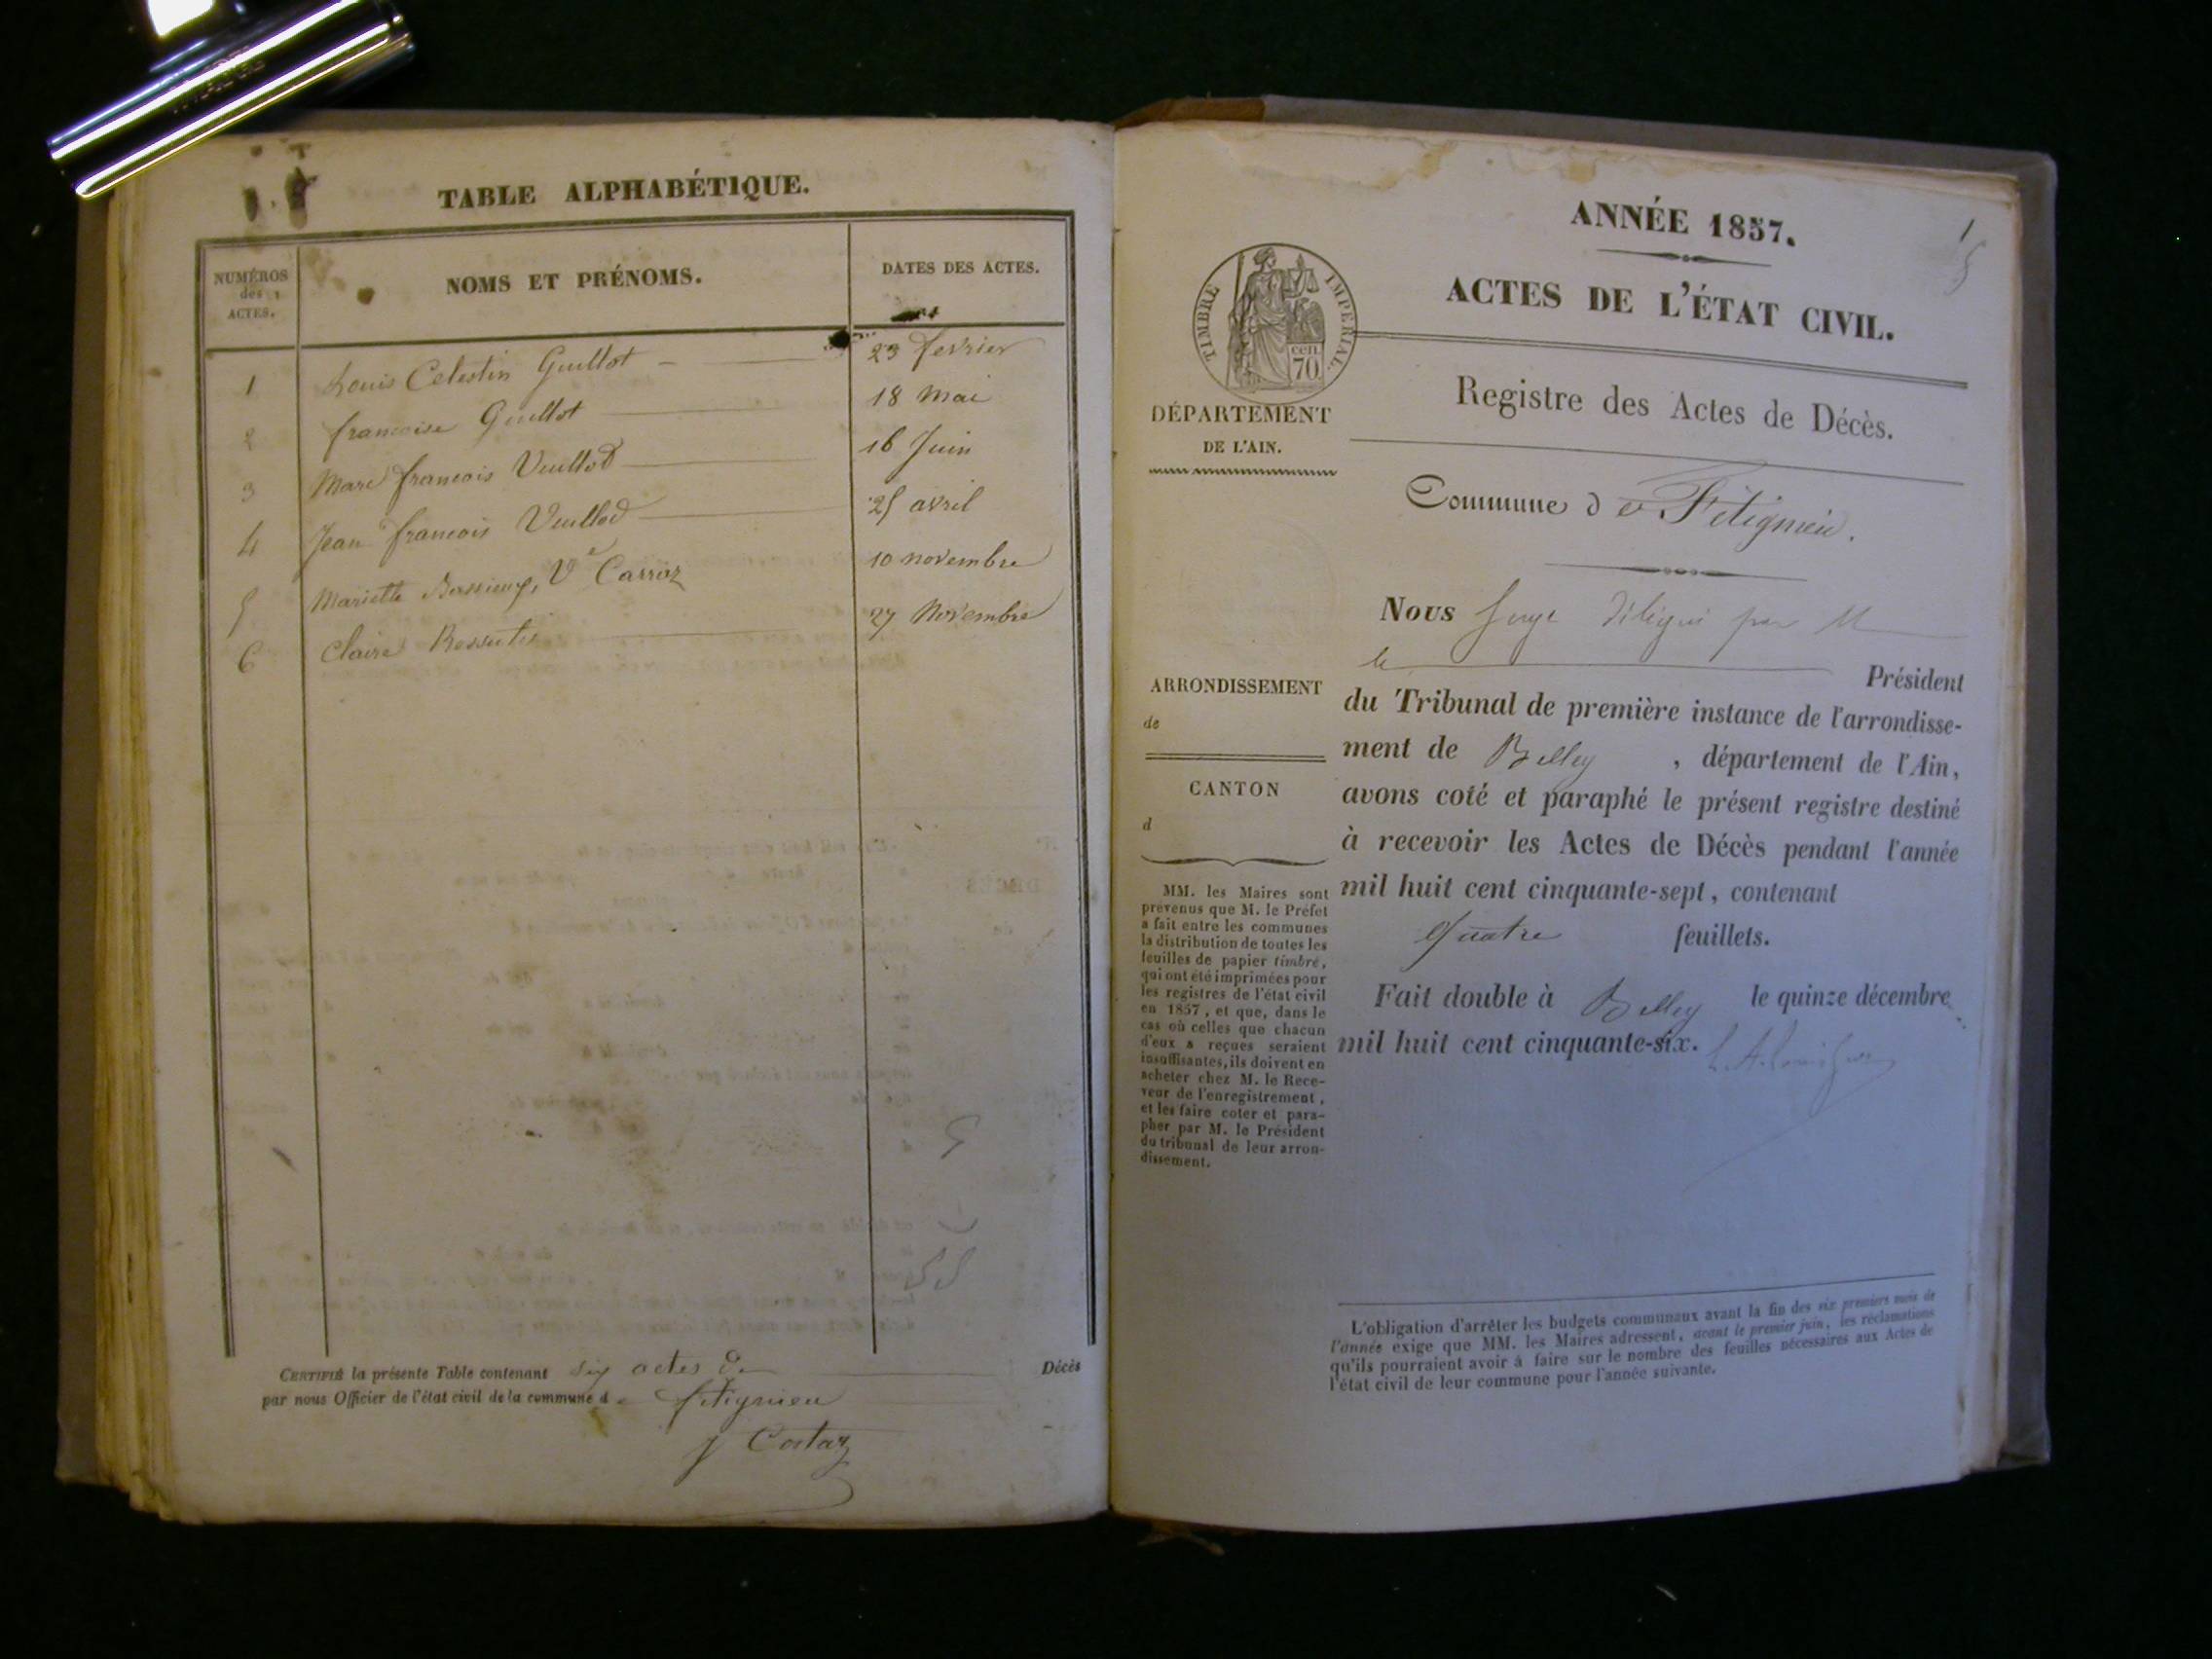 TABLE ALPHABÉTIQUE.
NUMÉROS
des
ACTES.
NOMS ET PRÉNOMS.
DATES DES ACTES.
1 Louis Celestin Guillot 23 fevrier
2 francoise Guillot 18 Mai
3 Marc francois Vuillod 16 Juin
4 Jean francois Vuillod 25 avril
5 Mariette Ve Carroz 10 novembre
6 Claire 27 Novembre
CERTIFIÉ la présente Table contenant six actes de Décès
par nous Officier de l'état civil de la commune de fitignieu
J Costaz
1
ANNÉE 1857.
ACTES DE L'ÉTAT CIVIL.
TIMBRE IMPERIAL.
cen.
70
DÉPARTEMENT
DE L'AIN.
Registre des Actes de Décès.
Commune de Fitignieu.
Nous Juge délégué par M
le Président
du Tribunal de première instance de l'arrondisse-
ment de Belley, département de l'Ain,
avons coté et paraphé le présent registre destiné
à recevoir les Actes de Décès pendant l'année
mil huit cent cinquante-sept, contenant
quatre feuillets.
Fait double à Belley le quinze décembre
mil huit cent cinquante-six.
ARRONDISSEMENT
de
CANTON
d
MM. les Maires sont
prévenus que M. le Préfet
a fait entre les communes
la distribution de toutes les
feuilles de papier timbré,
qui ont été imprimées pour
les registres de l'état civil
en 1857, et que, dans le
cas où celles que chacun
d'eux a reçues seraient
insuffisantes, ils doivent en
acheter chez M. le Rece-
veur de l'enregistrement,
et les faire coter et para-
pher par M. le Président
du tribunal de leur arron-
dissement.
L'obligation d'arrêter les budgets communaux avant la fin des six premiers mois de
l'année exige que MM. les Maires adressent, avant le premier juin, les réclamations
qu'ils pourraient avoir à faire sur le nombre des feuilles nécessaires aux Actes de
l'état civil de leur commune pour l'année suivante.